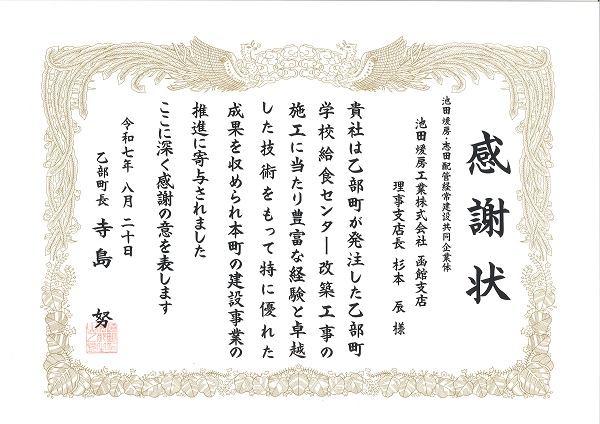 感謝状
池田煖房・志田配管経常建設共同企業体
池田煖房工業株式会社 函館支店
理事支店長 杉本 辰 様
貴社は乙部町が発注した乙部町
学校給食センター改築工事の
施工に当たり豊富な経験と卓越
した技術をもって特に優れた
成果を収められ本町の建設事業の
推進に寄与されました
ここに深く感謝の意を表します
令和七年 八月 二十日
乙部町長 寺島 努